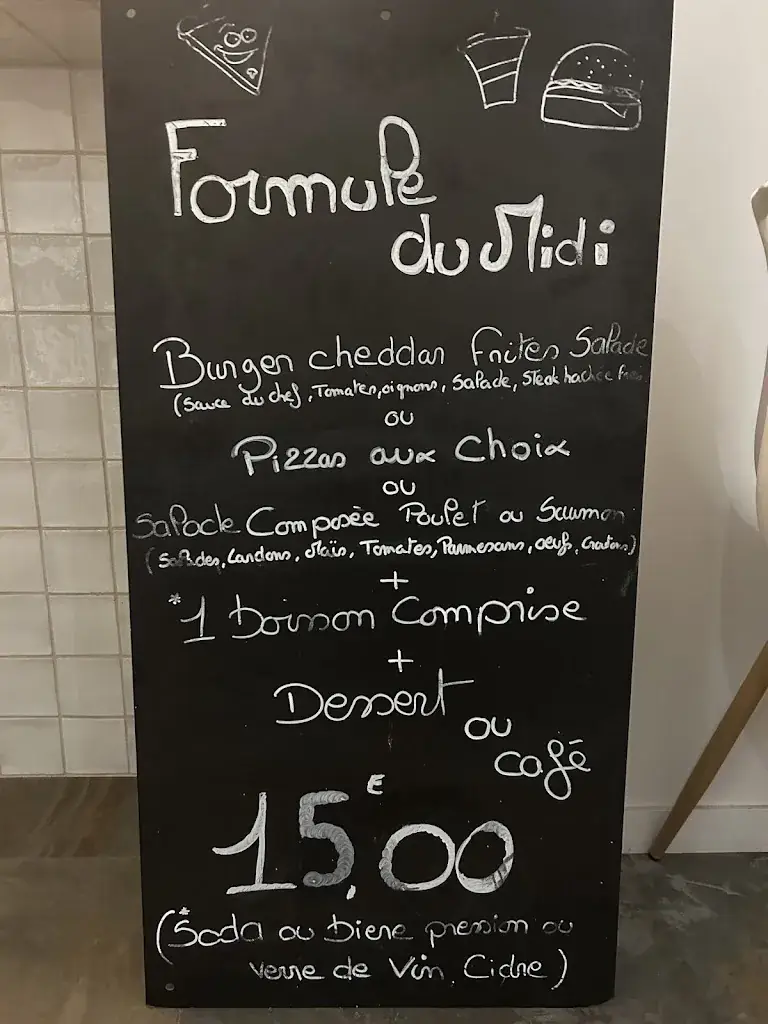 Formule
du Midi
Burger cheddar frites Salade
(Sauce du chef, Tomates, oignons, Salade, Steak hachée frais
ou
Pizzas aux Choix
ou
Salade Composée Poulet ou Saumon
(Salades, Lardons, Maïs, Tomates, Parmesans, oeufs, Croutons)
+
*1 Boisson Comprise
+
Dessert
ou
café
15,00€
(*Soda ou bière pression ou
verre de Vin, Cidre)